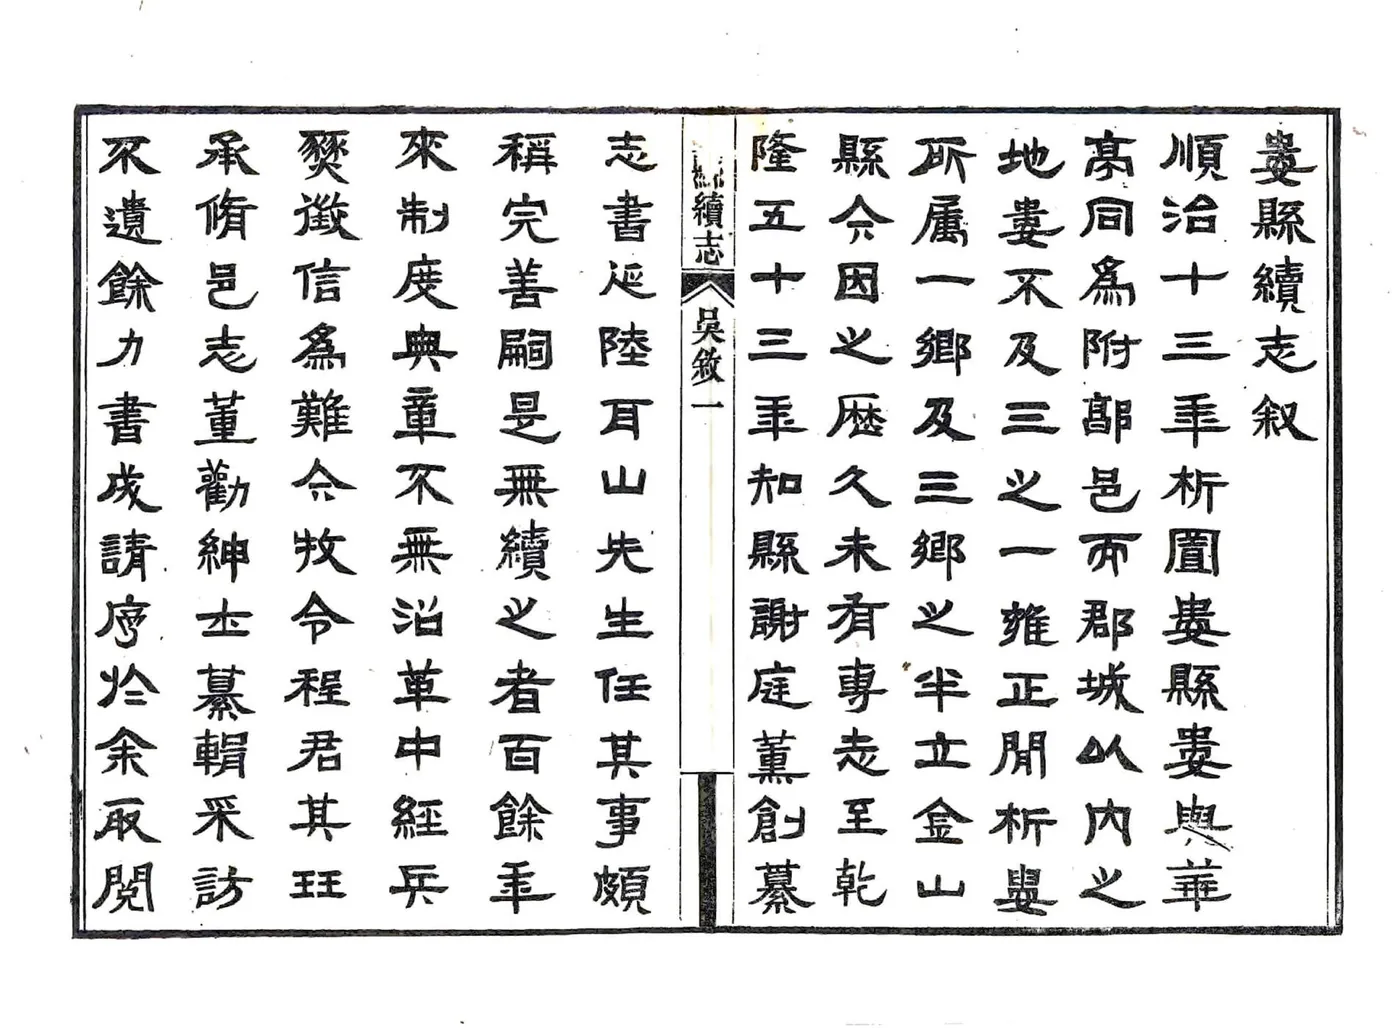 婁縣續志叙
順治十三年析置婁縣婁與華
亭同爲附郭邑而郡城以内之
地婁不及三之一雍正閒析婁
所属一鄉及三鄉之半立金山
縣今因之歴久未有專志至乾
隆五十三年知縣謝庭薰創纂
縣續志
吳敘一
志書延陸耳山先生任其事頗
稱完善嗣是無續之者百餘年
來制度典章不無沿革中經兵
燹徵信爲難今牧令程君其珏
承脩邑志董勸紳士纂輯采訪
不遺餘力書成請序於余取閱